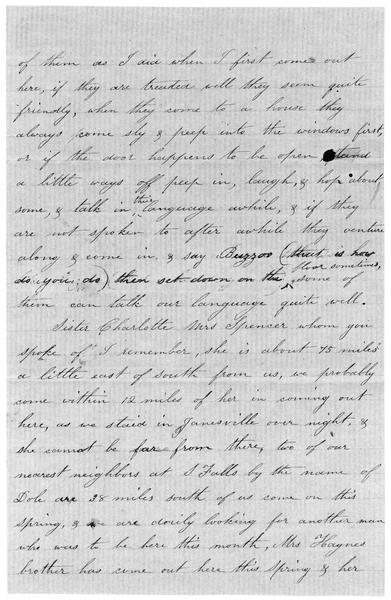 of them as I did when I first come out
here, if they are treated well they seem quite
friendly, when they come to a house they
always come sly & peep into the windows first,
or if the door happens to be open stand
a little ways off peep in, laugh, & hop about
some, & talk in their language awhile, & if they
are not spoken to after awhile they venture
along & come in & say Buzzoo (that is how
do you do) then set down on the floor sometimes, some of
them can talk our language quite well.
Sister Charlotte Mrs Spencer whom you
spoke of I remember, she is about 75 miles
a little east of south from us, we probably
come within 12 miles of her in coming out
here, as we staid in Janesville over night, &
she cannot be far from there, two of our
nearest neighbors at S Falls by the name of
Dole are 28 miles south of us come on this
Spring, & we are daily looking for another man
who was to be here this month, Mrs Haynes
brother has come out here this Spring & her